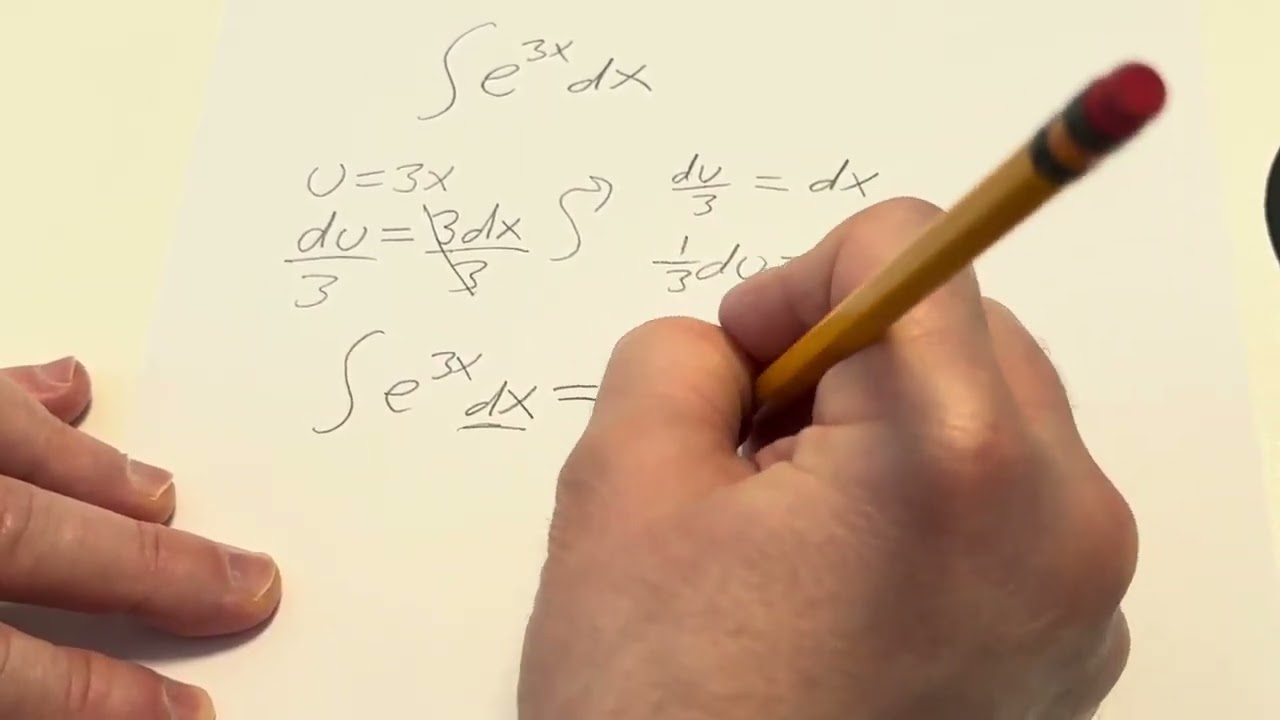 ∫ e^{3x} dx
u = 3x
du/3 = 3dx/3
du/3 = dx
1/3 du =
∫ e^{3x} dx =